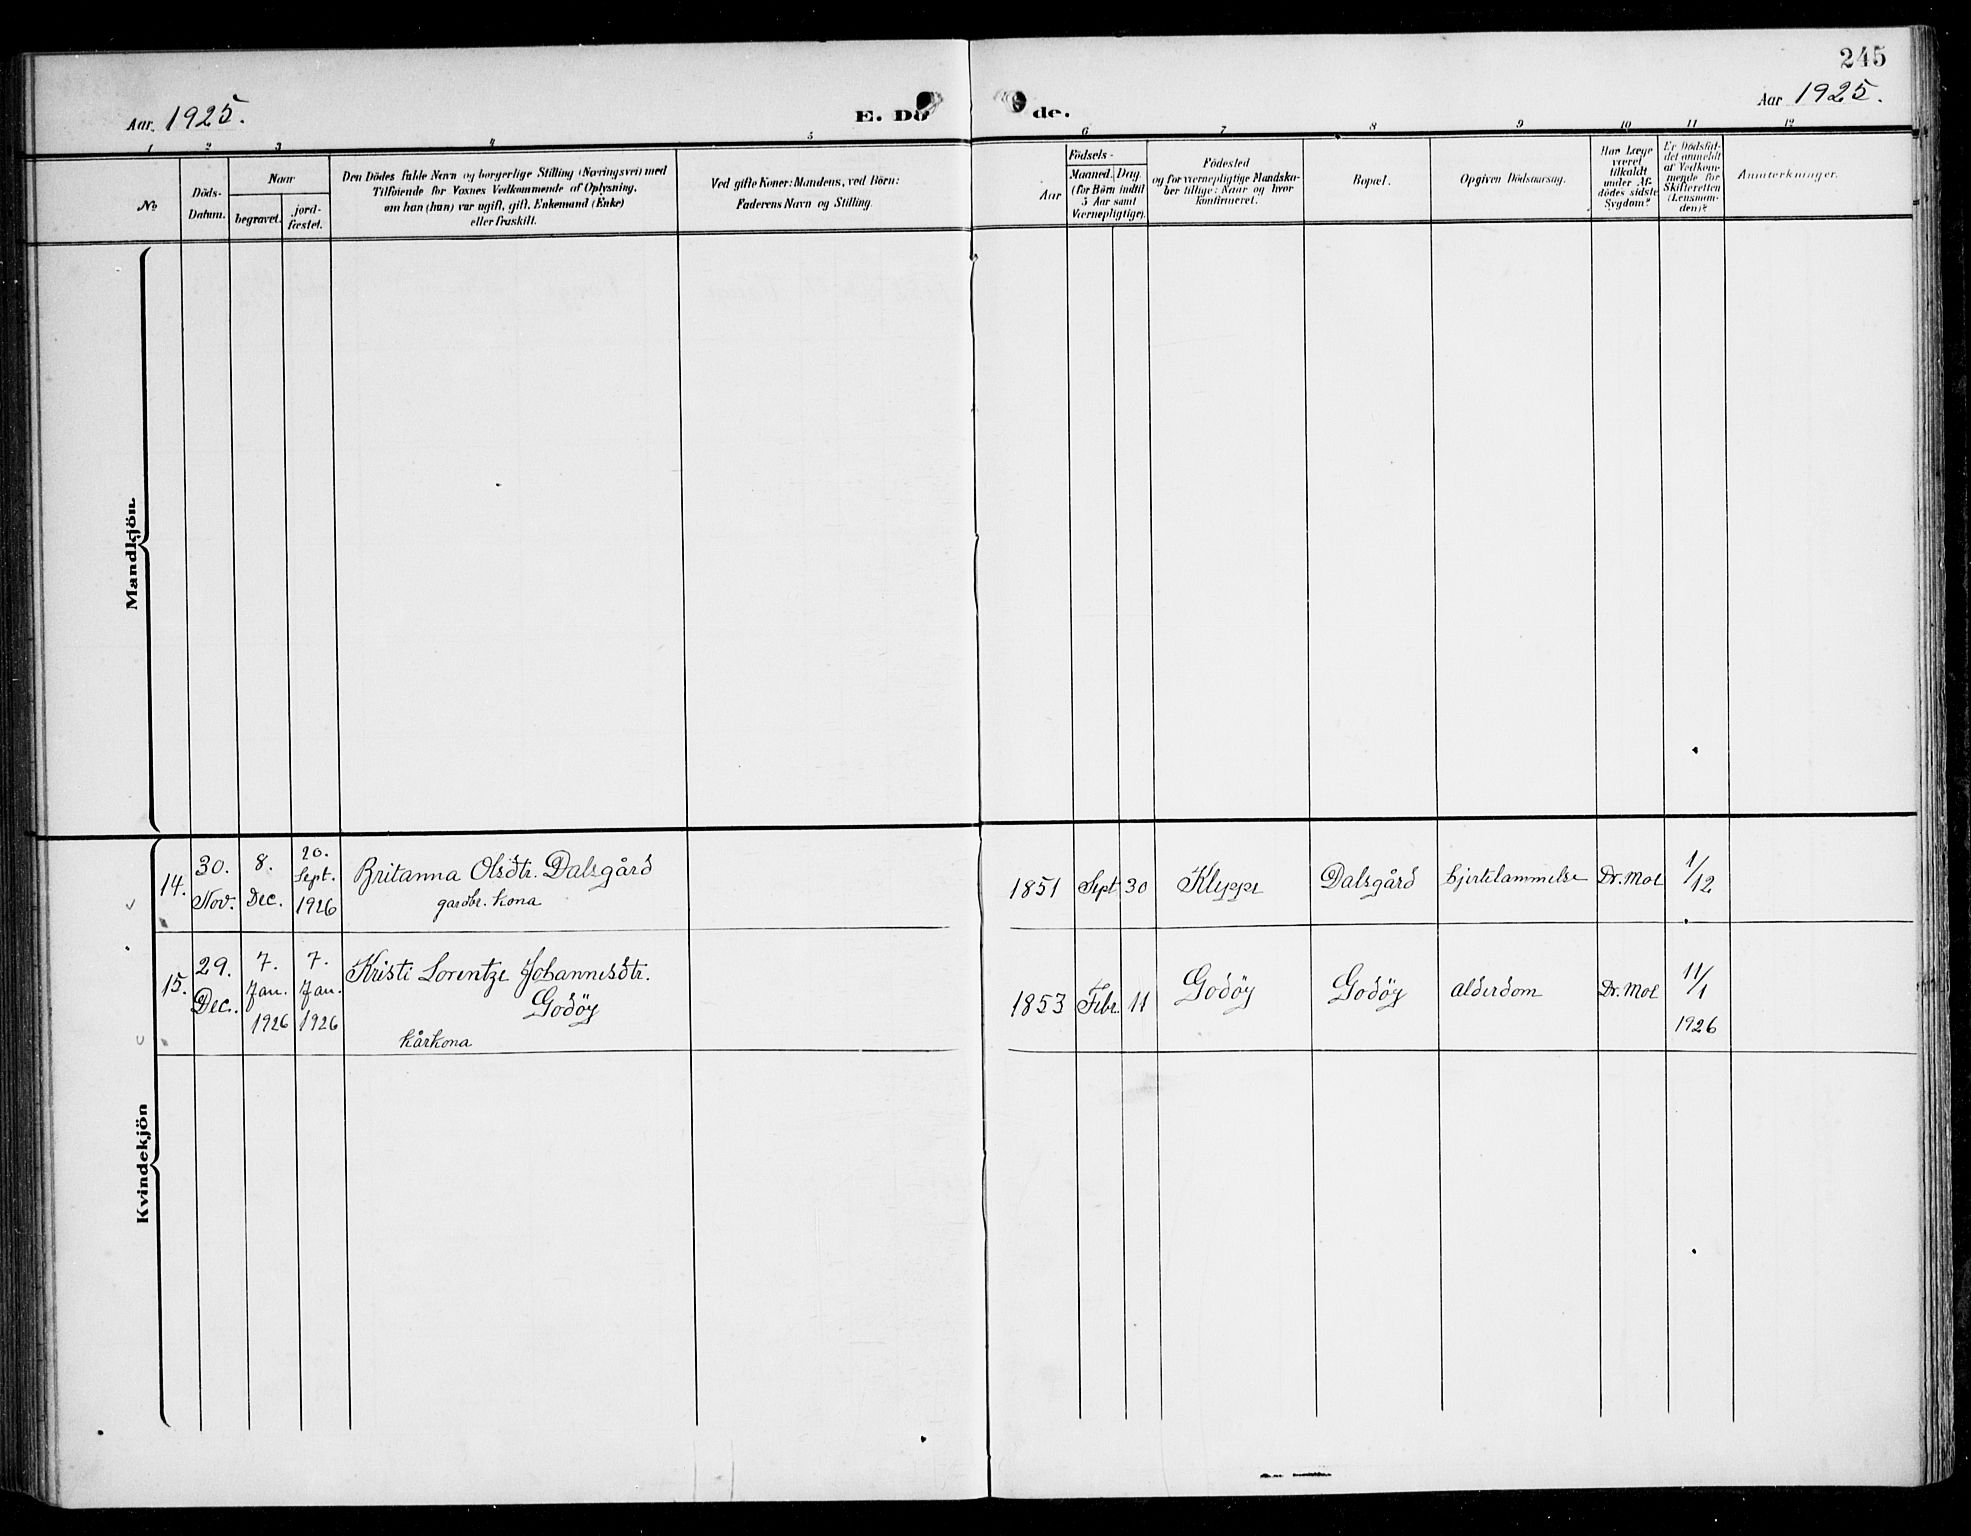 245
Aar. 1925.
E. Dö de.
Aar 1925.
1 2 3 4 5 6 7 8 9 10 11 12
No
Döds-
Datum.
Naar
begravet.
jord-
fæstet.
Den Dödes fulde Navn og borgerlige Stilling (Næringsvei) med
Tilföiende for Voxnes Vedkommende af Oplysning,
om han (hun) var ugift, gift, Enkemand (Enke)
eller fraskilt.
Ved gifte Koner: Mandens, ved Börn:
Faderens Navn og Stilling.
Aar
Födsels-
Maaned. Dag
(for Börn indtil
5 Aar samt
Værnepligtige).
Födested
og for værnepligtige Mandska-
ber tillige: Naar og hvor
konfirmeret.
Bopæl.
Opgiven Dödsaarsag.
Har Læge
været
tilkaldt
under Af-
dödes sidste
Sygdom?
Er Dödsfal-
det anmeldt
af Vedkom-
mende for
Skifteretten
(Lensman-
den)?
Anmærkninger.
Mandkjön.
Kvindekjön
14.
30.
Nov.
8.
Dec.
20.
Sept.
1926
Britanna Olsdtr. Dalsgård
gardbr. kona
1851 Sept 30 Kleppe Dalsgård hjertelammelse Dr. Moe
1/12
15.
29.
Dec.
7.
Jan.
1926
7.
Jan.
1926
Kristi Lorentze Johannesdtr.
Godøy
kårkona
1853 Febr. 11 Godøy Godøy alderdom Dr. Moe
11/1
1926